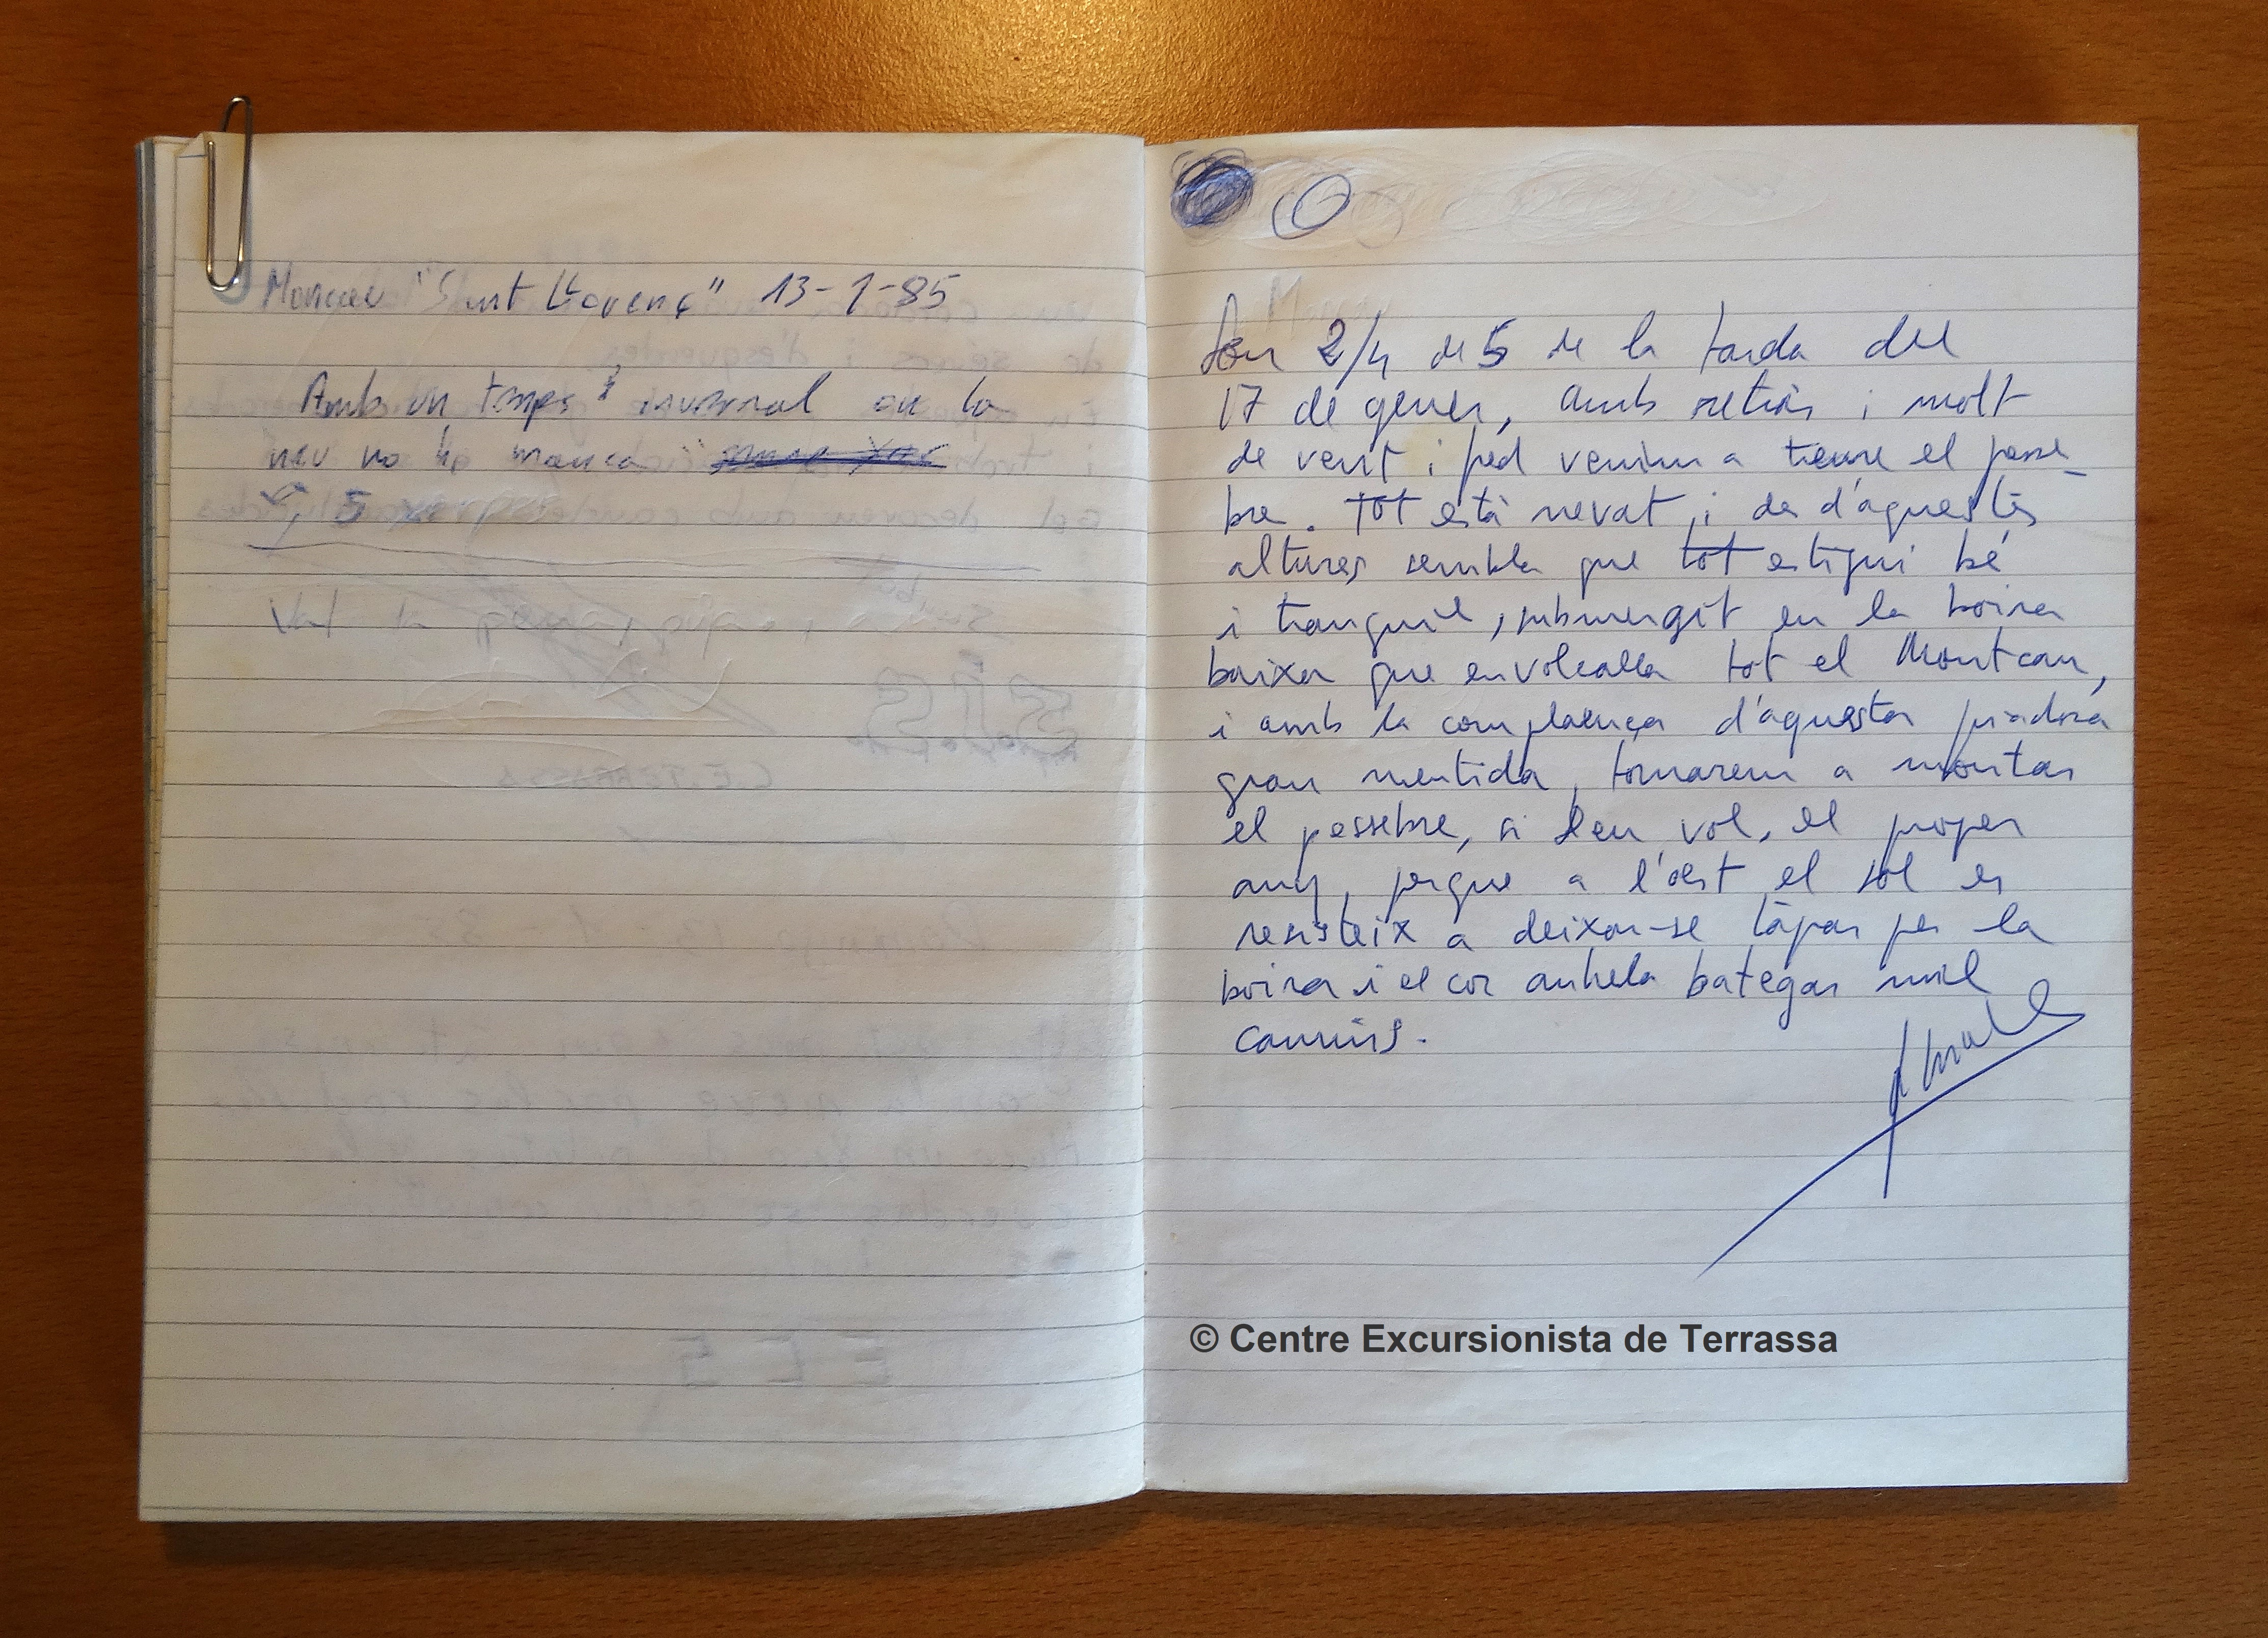 Moncau "Sant Llorenç" 13-1-85
Amb un temps hivernal on la
neu no ha manca
, 5
Són 2/4 de 5 de la tarda del
17 de gener, amb retràs i molt
de vent i fred venim a treure el pesse_
bre. Tot està nevat i des d'aquestes
altures sembla que tot estigui bé
i tranquil, submergit en la boira
baixa que envolcalla tot el Montcau,
i amb la complaença d'aquesta piadosa
gran mentida, tornarem a montar
el pessebre, si Deu vol, el proper
any, perque a l'oest el sol es
resisteix a deixar-se tàpar per la
boira i el cor anhela bategar mil
camins.
© Centre Excursionista de Terrassa